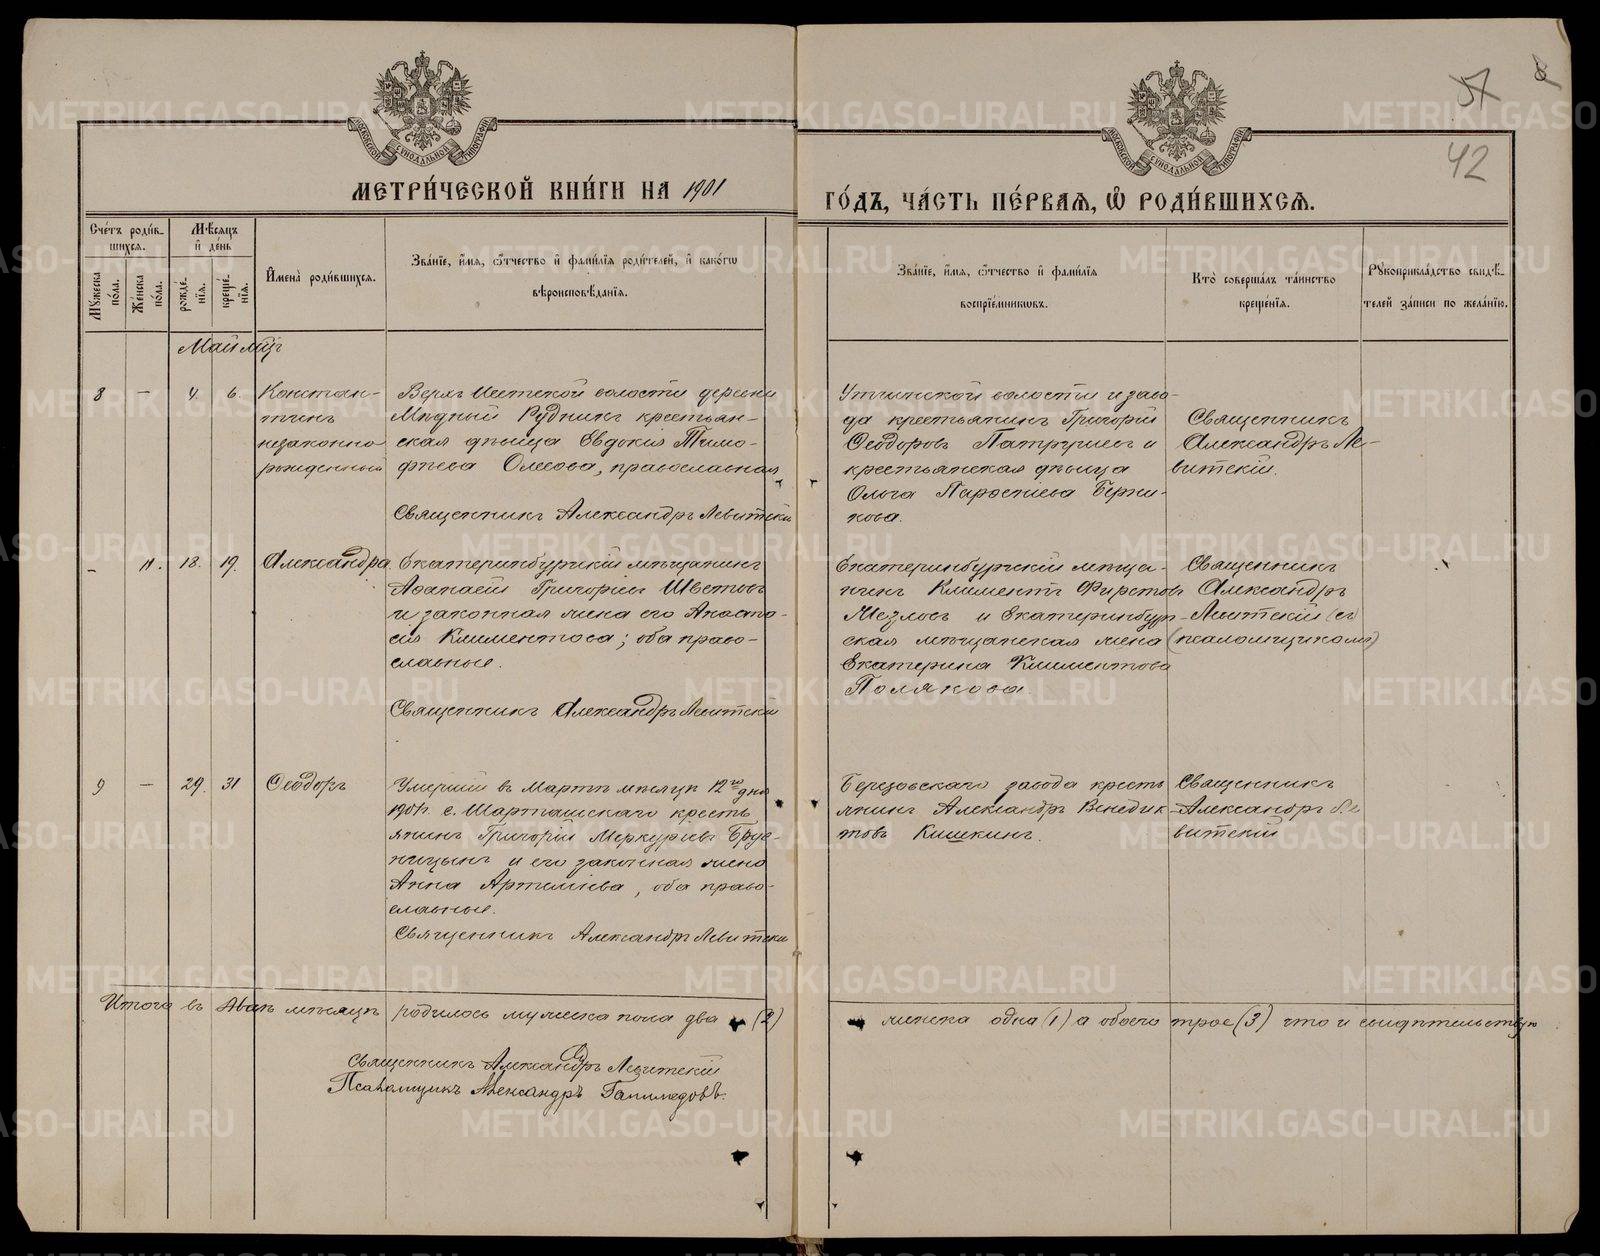 57
42
МЕТРИ́ЧЕСКОЙ КНИ́ГИ НА 1901
ГО́ДЪ, ЧА́СТЬ ПЕ́РВАѦ, Ѡ҆ РОДИ́ВШИХСѦ.
Сче́тъ роди́в-
шихсѧ.
Мꙋ́жеска по́ла.
Же́нска по́ла.
Мѣ́сѧцъ
и҆ де́нь
рожде́-
нїѧ.
креще́-
нїѧ.
И҆мена̀ роди́вшихсѧ.
Зва́нїе, и҆́мѧ, ѻ҆́тчество и҆ фами́лїѧ роди́телей, и҆ како́гѡ
вѣроисповѣ́данїѧ.
Зва́нїе, и҆́мѧ, ѻ҆́тчество и҆ фами́лїѧ
воспрїе́мникѡвъ.
Кто̀ соверша́лъ та́инство
креще́нїѧ.
Рꙋкоприкла́дство свидѣ́-
телей за́писи по жела́нїю.
Май мцъ
8 — 4. 6.
Констан-
тинъ
незаконно
рожденный
Верхъ Исетской волости деревни
Мѣдный Рудникъ крестьян-
ская дѣвица Евдокія Тимо-
феева Олесова, православная
Священникъ Александръ Левитскій
Уткинской волости и заво-
да крестьянинъ Григорій
Ѳеодоровъ Патрушевъ и
крестьянская дѣвица
Ольга
Священникъ
Александръ Ле-
витскій.
— 11. 18. 19.
Александра
Екатеринбургскій мѣщанинъ
Аѳанасій Григорьевъ Шветовъ
и законная жена его Анаста-
сія Климентова; оба право-
славные.
Священникъ Александръ Левитскій
Екатеринбургскій мѣща-
нинъ Климентъ Фирстовъ
Мезловъ и Екатеринбур-
ская мѣщанская жена
Екатерина Климентова
Полякова.
Священникъ
Александръ
Левитскій (съ
псаломщикомъ)
9 — 29. 31
Ѳеодоръ
Умершій въ Мартѣ мѣсяцѣ 12го дня
1901г. с. Шарташскаго кресть
янинъ Григорій Меркурьевъ Брус-
ницынъ и его законная жена
Анна Артемьева, оба право-
славные.
Священникъ Александръ Левитскій
Березовскаго завода кресть
янинъ Александръ Венедик-
товъ Кишкинъ.
Священникъ
Александръ Ле
витскій
Итого въ Маѣ мѣсяцѣ родилось мужеска пола два (2)
женска одна (1) а обоего трое (3) что и свидѣтельствую
Священникъ Александръ Левитскій
Псаломщикъ Александръ
METRIKI.GASO-URAL.RU